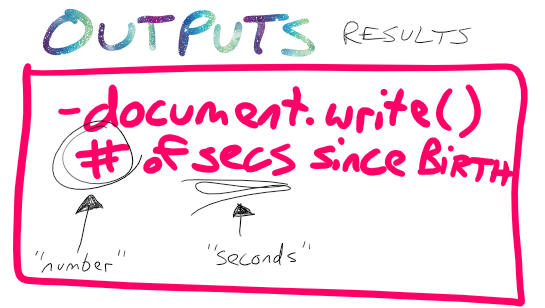 OUTPUTS RESULTS
-document.write()
# of secs since BIRTH
"number" "seconds"